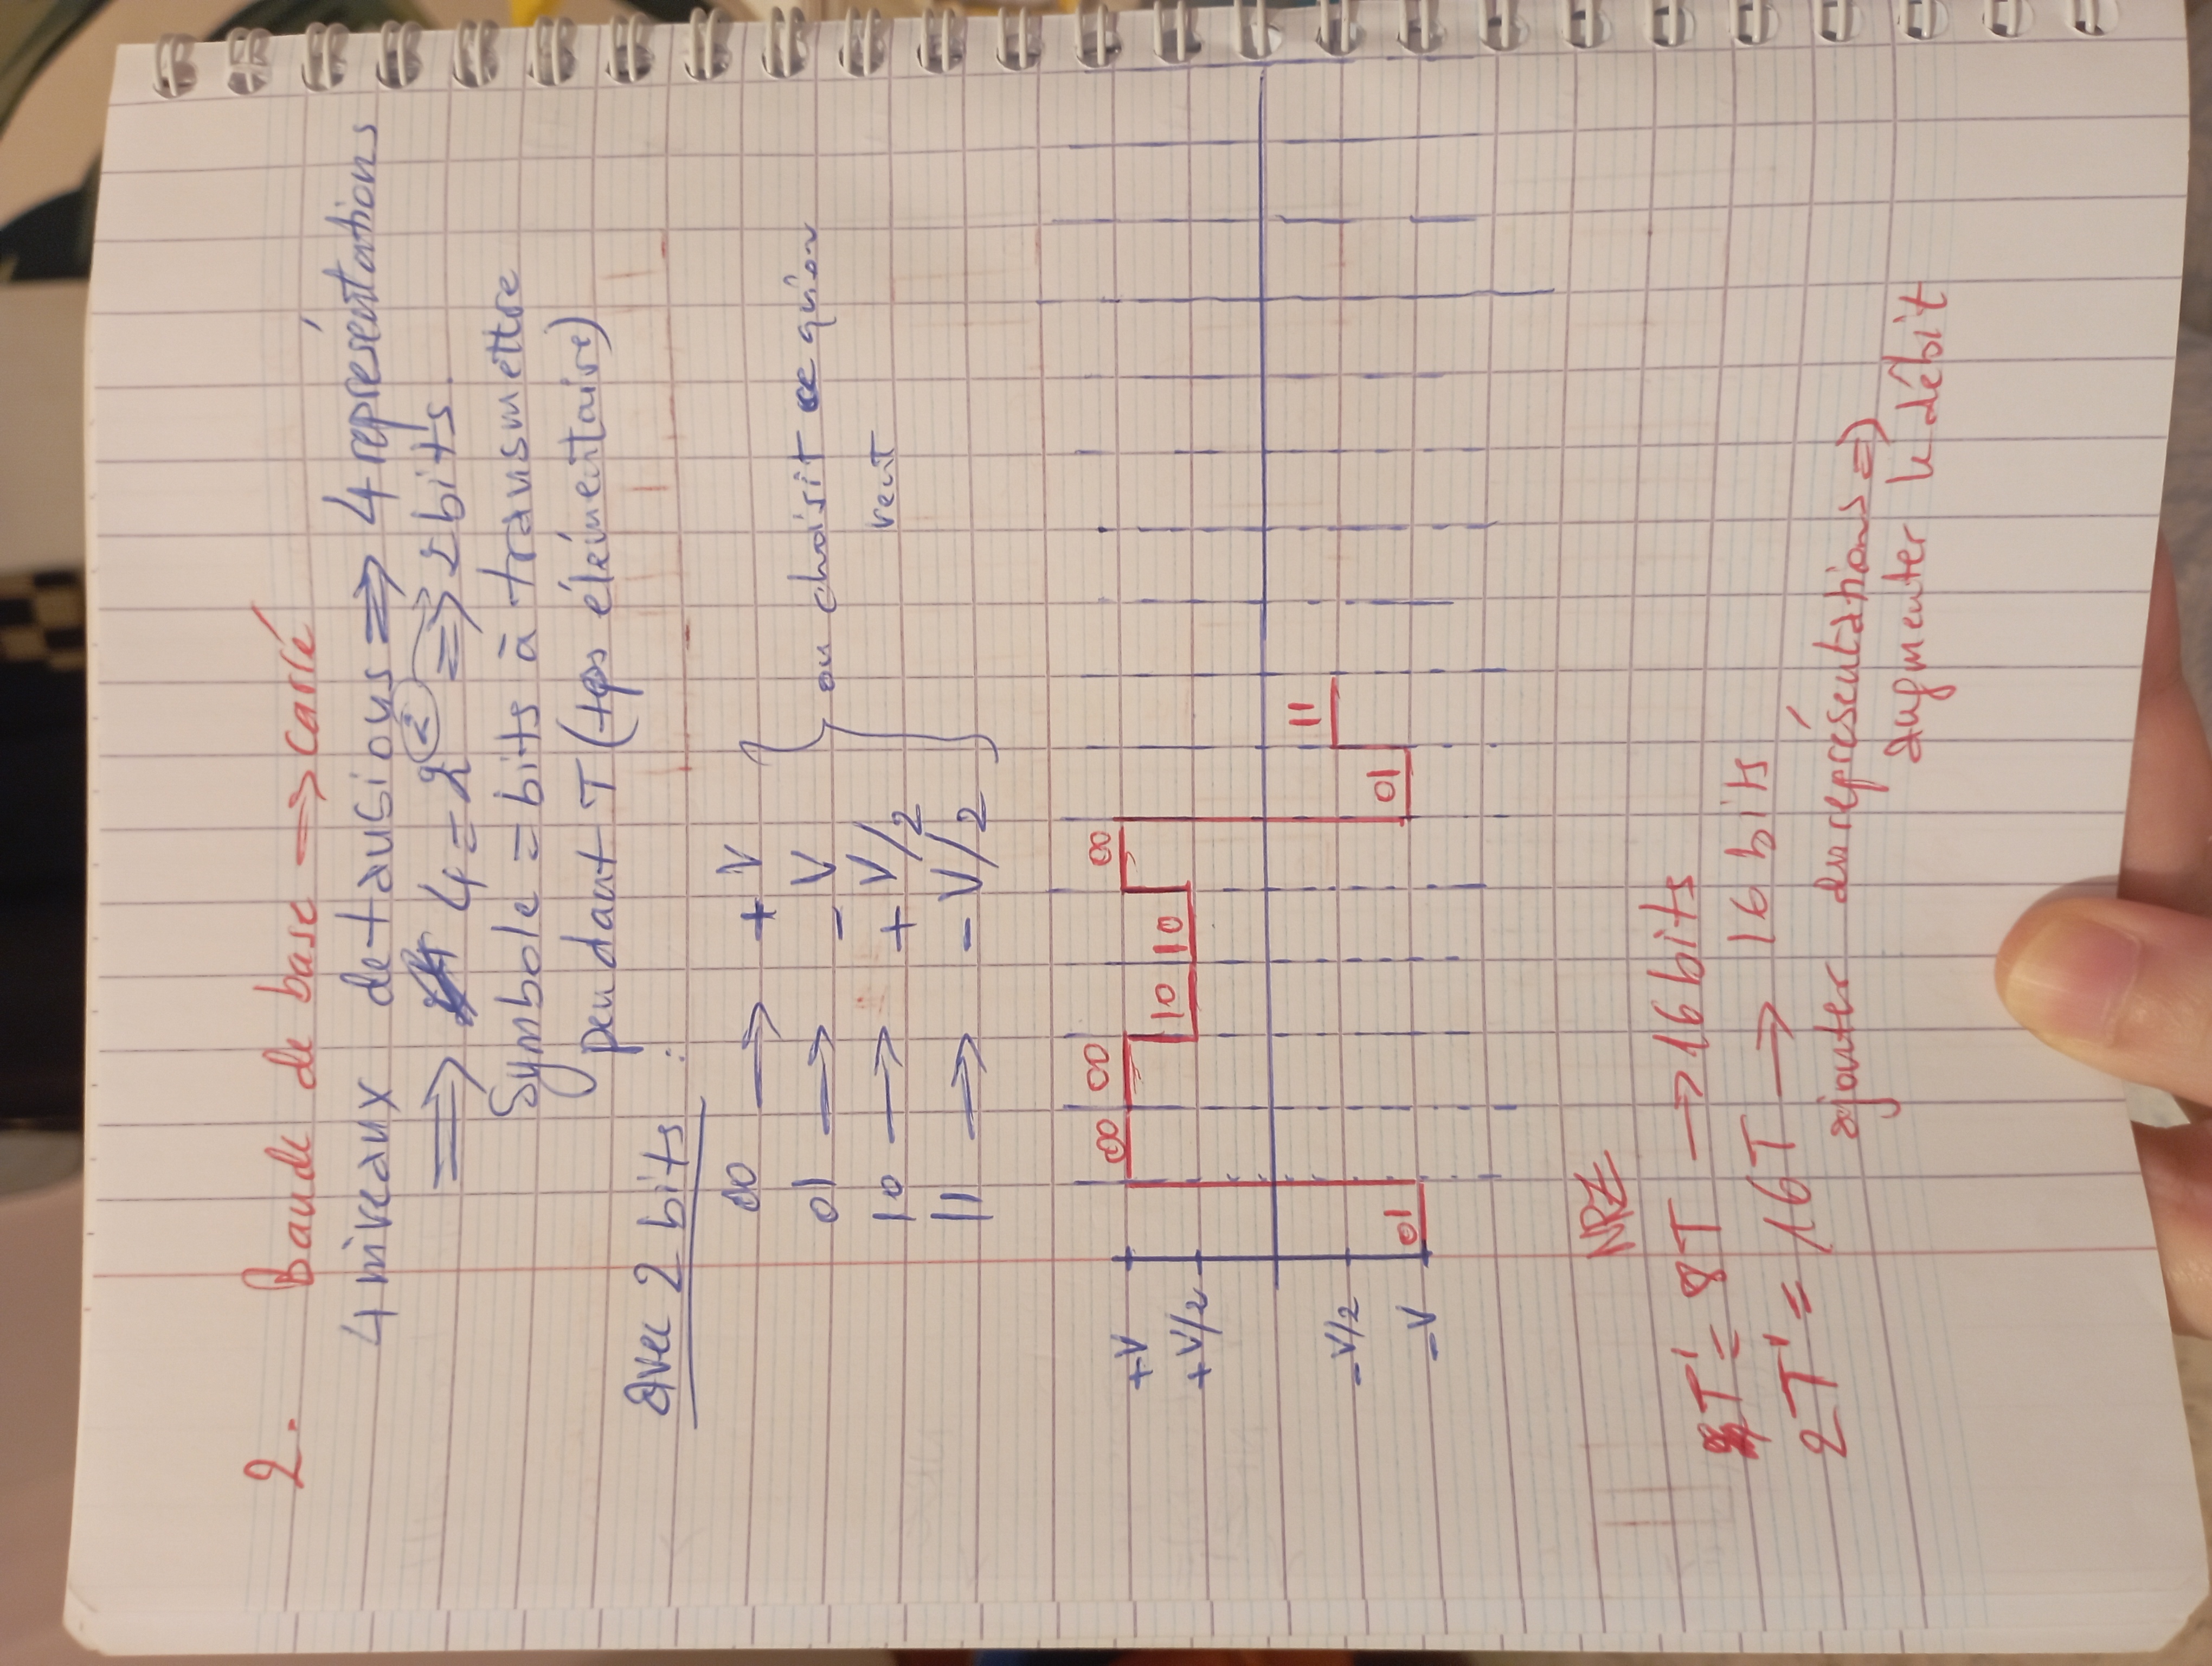 2. Bande de base => carré
4 niveaux de tensions => 4 représentations
=> 4 = 2² => 2 bits.
Symbole = bits à transmettre
pendant T (tps élémentaire)
avec 2 bits :
00 → + V
01 → - V
10 → + V/2
11 → - V/2
on choisit ce qu'on
veut
00 00 00
+V
10 10
+V/2
11
-V/2
01 01
-V
NRZ
T' = 8T → 16 bits
2T' = 16T → 16 bits
ajouter des représentations =>
augmenter le débit